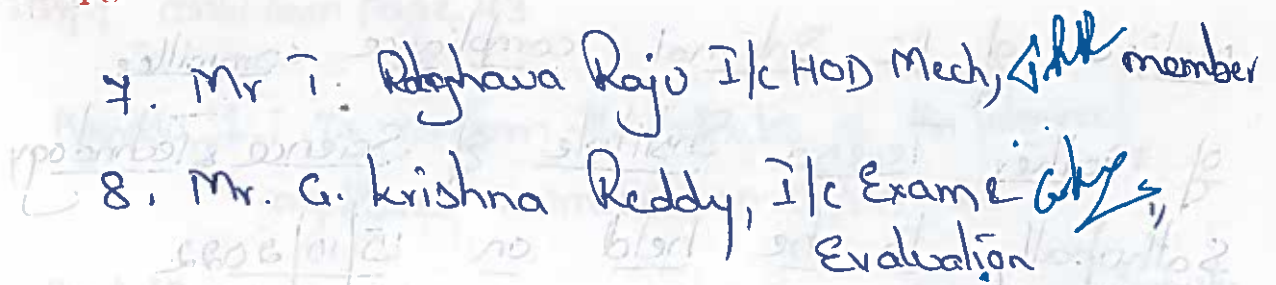 7. Mr T. Raghava Raju I/c HOD Mech, member
8. Mr. G. Krishna Reddy, I/c Exam &
Evaluation